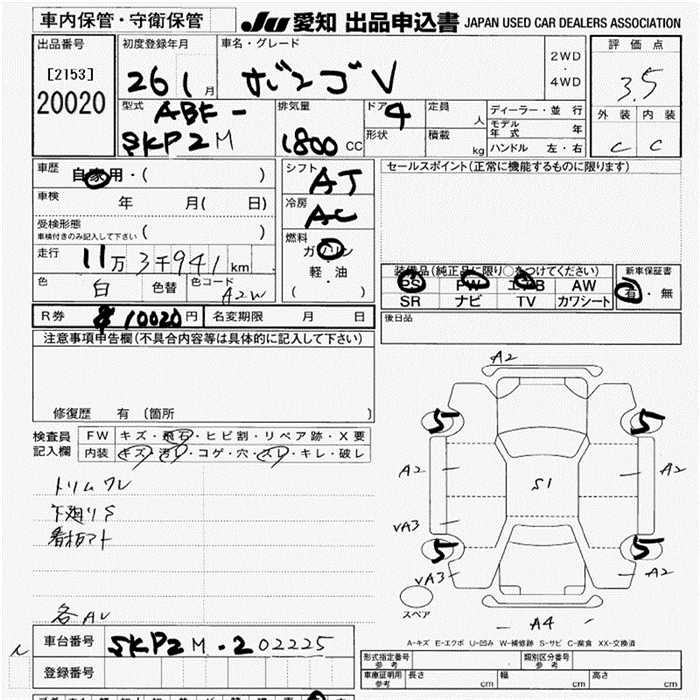 車内保管・守衛保管
Ju 愛知 出品申込書 JAPAN USED CAR DEALERS ASSOCIATION
出品番号
[2153]
20020
初度登録年月
26 1 月
車名・グレード
ボンゴ V
2WD
・
4WD
評価点
3.5
外装 内装
C C
型式
ABF-
SKP2M
排気量
1800 CC
ドア 4
形状
定員 人
積載 kg
ディーラー・並行
モデル年式 年
ハンドル 左・右
車歴
自家用・( )
車検
年 月( 日)
受検形態
車検付きのみ記入して下さい ( )
走行
11万3千941km
色 白 色替 色コード A2W
シフト
AT
冷房
AC
燃料
ガソリン
・
軽・油
( )
セールスポイント(正常に機能するものに限ります)
装備品(純正品に限り○をつけてください)
PS PW エアB AW
SR ナビ TV カワシート
新車保証書
有・無
R券 ¥10020円 名変期限 月 日
後日品
注意事項申告欄(不具合内容等は具体的に記入して下さい)
修復歴 有 (箇所 )
検査員
記入欄
FW キズ・飛石・ヒビ割・リペア跡・X要
内装 キズ・汚レ・コゲ・穴・スレ・キレ・破レ
トリムワレ
下廻りS
看板アト
各AU
A2
5 5
A2 S1 A2
VA3
5 5
VA3 A2
スペア
A4
A-キズ E-エクボ U-凹み W-補修跡 S-サビ C-腐食 XX-交換済
車台番号 SKP2M-202225
登録番号
型式指定番号
参考
類別区分番号
参考
車庫証明用
参考
長さ cm 幅 cm 高さ cm